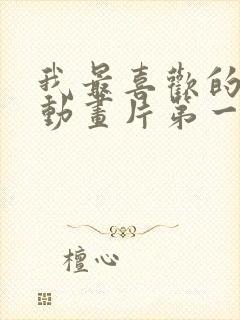 我最喜歡的
動畫片第一
檀心